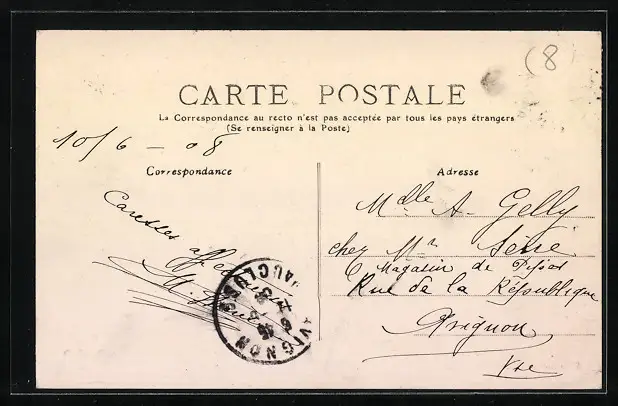 (8)
CARTE POSTALE
La Correspondance au recto n'est pas acceptée par tous les pays étrangers
(Se renseigner à la Poste)
10/6 - 08
Correspondance
Caresses
Adresse
Mdlle A. Gelly
chez Mr
Magasin de
Rue de la République
Avignon
Vse
AVIGNON
VAUCLUSE